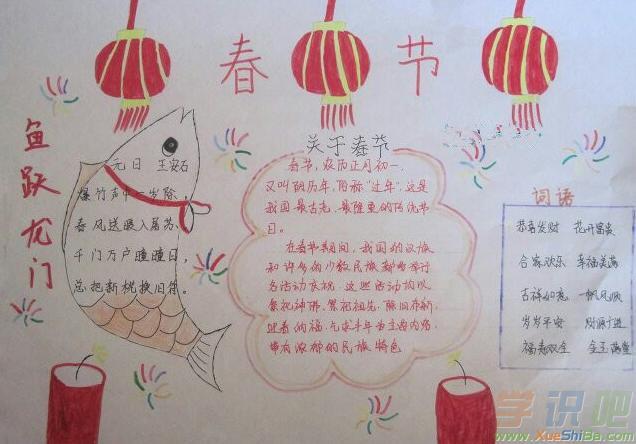 春节
鱼跃龙门
元日 王安石
爆竹声中一岁除,
春风送暖入屠苏
千门万户曈曈日,
总把新桃换旧符。
关于春节
春节,农历正月初一,
又叫阴历年,俗称"过年"。这是
我国最古老、最隆重的传统节
日。
在春节期间,我国的汉族
和许多的少数民族都要举行
各活动庆祝。这些活动均以
祭祀神佛、祭祀祖先、除旧布新、
迎春纳福、气求丰年为主要内容
带有浓郁的民族特色
词语
恭喜发财 花开富贵
合家欢乐 幸福美满
吉祥如意 一帆风顺
岁岁平安 财源广进
福寿双全 金玉满堂
学识吧
www.XueShiBa.com